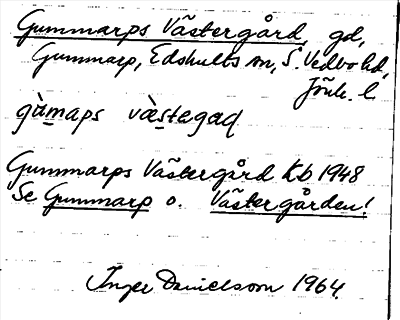 Gummarps Västergård, gd,
Gummarp, Edshults sn, S. Vedbo hd,
Jönk. l
gùmaps vàstegaɖ
Gummarps Västergård Kb 1948
Se Gummarp o. Västergården!
Inger Danielsson 1964.